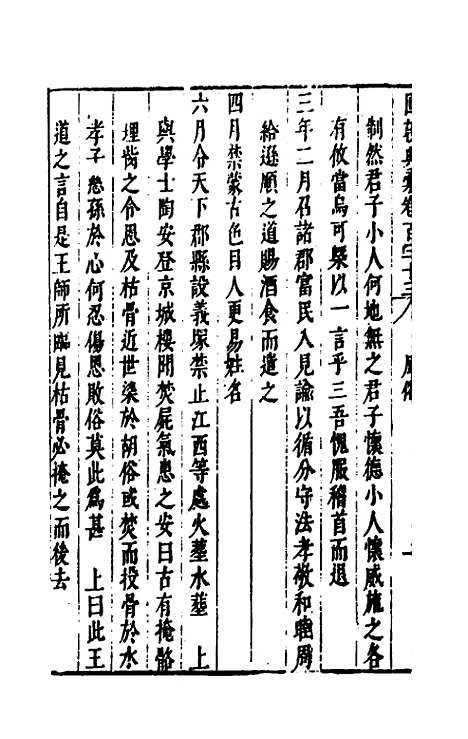 國朝典彙卷百字十三　風俗
制然君子小人何地無之君子懷德小人懷威施之各
有攸當烏可槩以一言乎三吾愧服稽首而退
三年二月召諸郡富民入見諭以循分守法孝敬和睦周
給遜順之道賜酒食而遣之
四月禁蒙古色目人更易姓名
六月令天下郡縣設義塚禁止江西等處火塟水塟　上
與學士陶安登京城樓聞焚屍氣患之安曰古有掩骼
埋胔之令恩及枯骨近世染於胡俗或焚而投骨於水
孝子慈孫於心何忍傷恩敗俗莫此為甚　上曰此王
道之言自是王師所臨見枯骨必掩之而後去